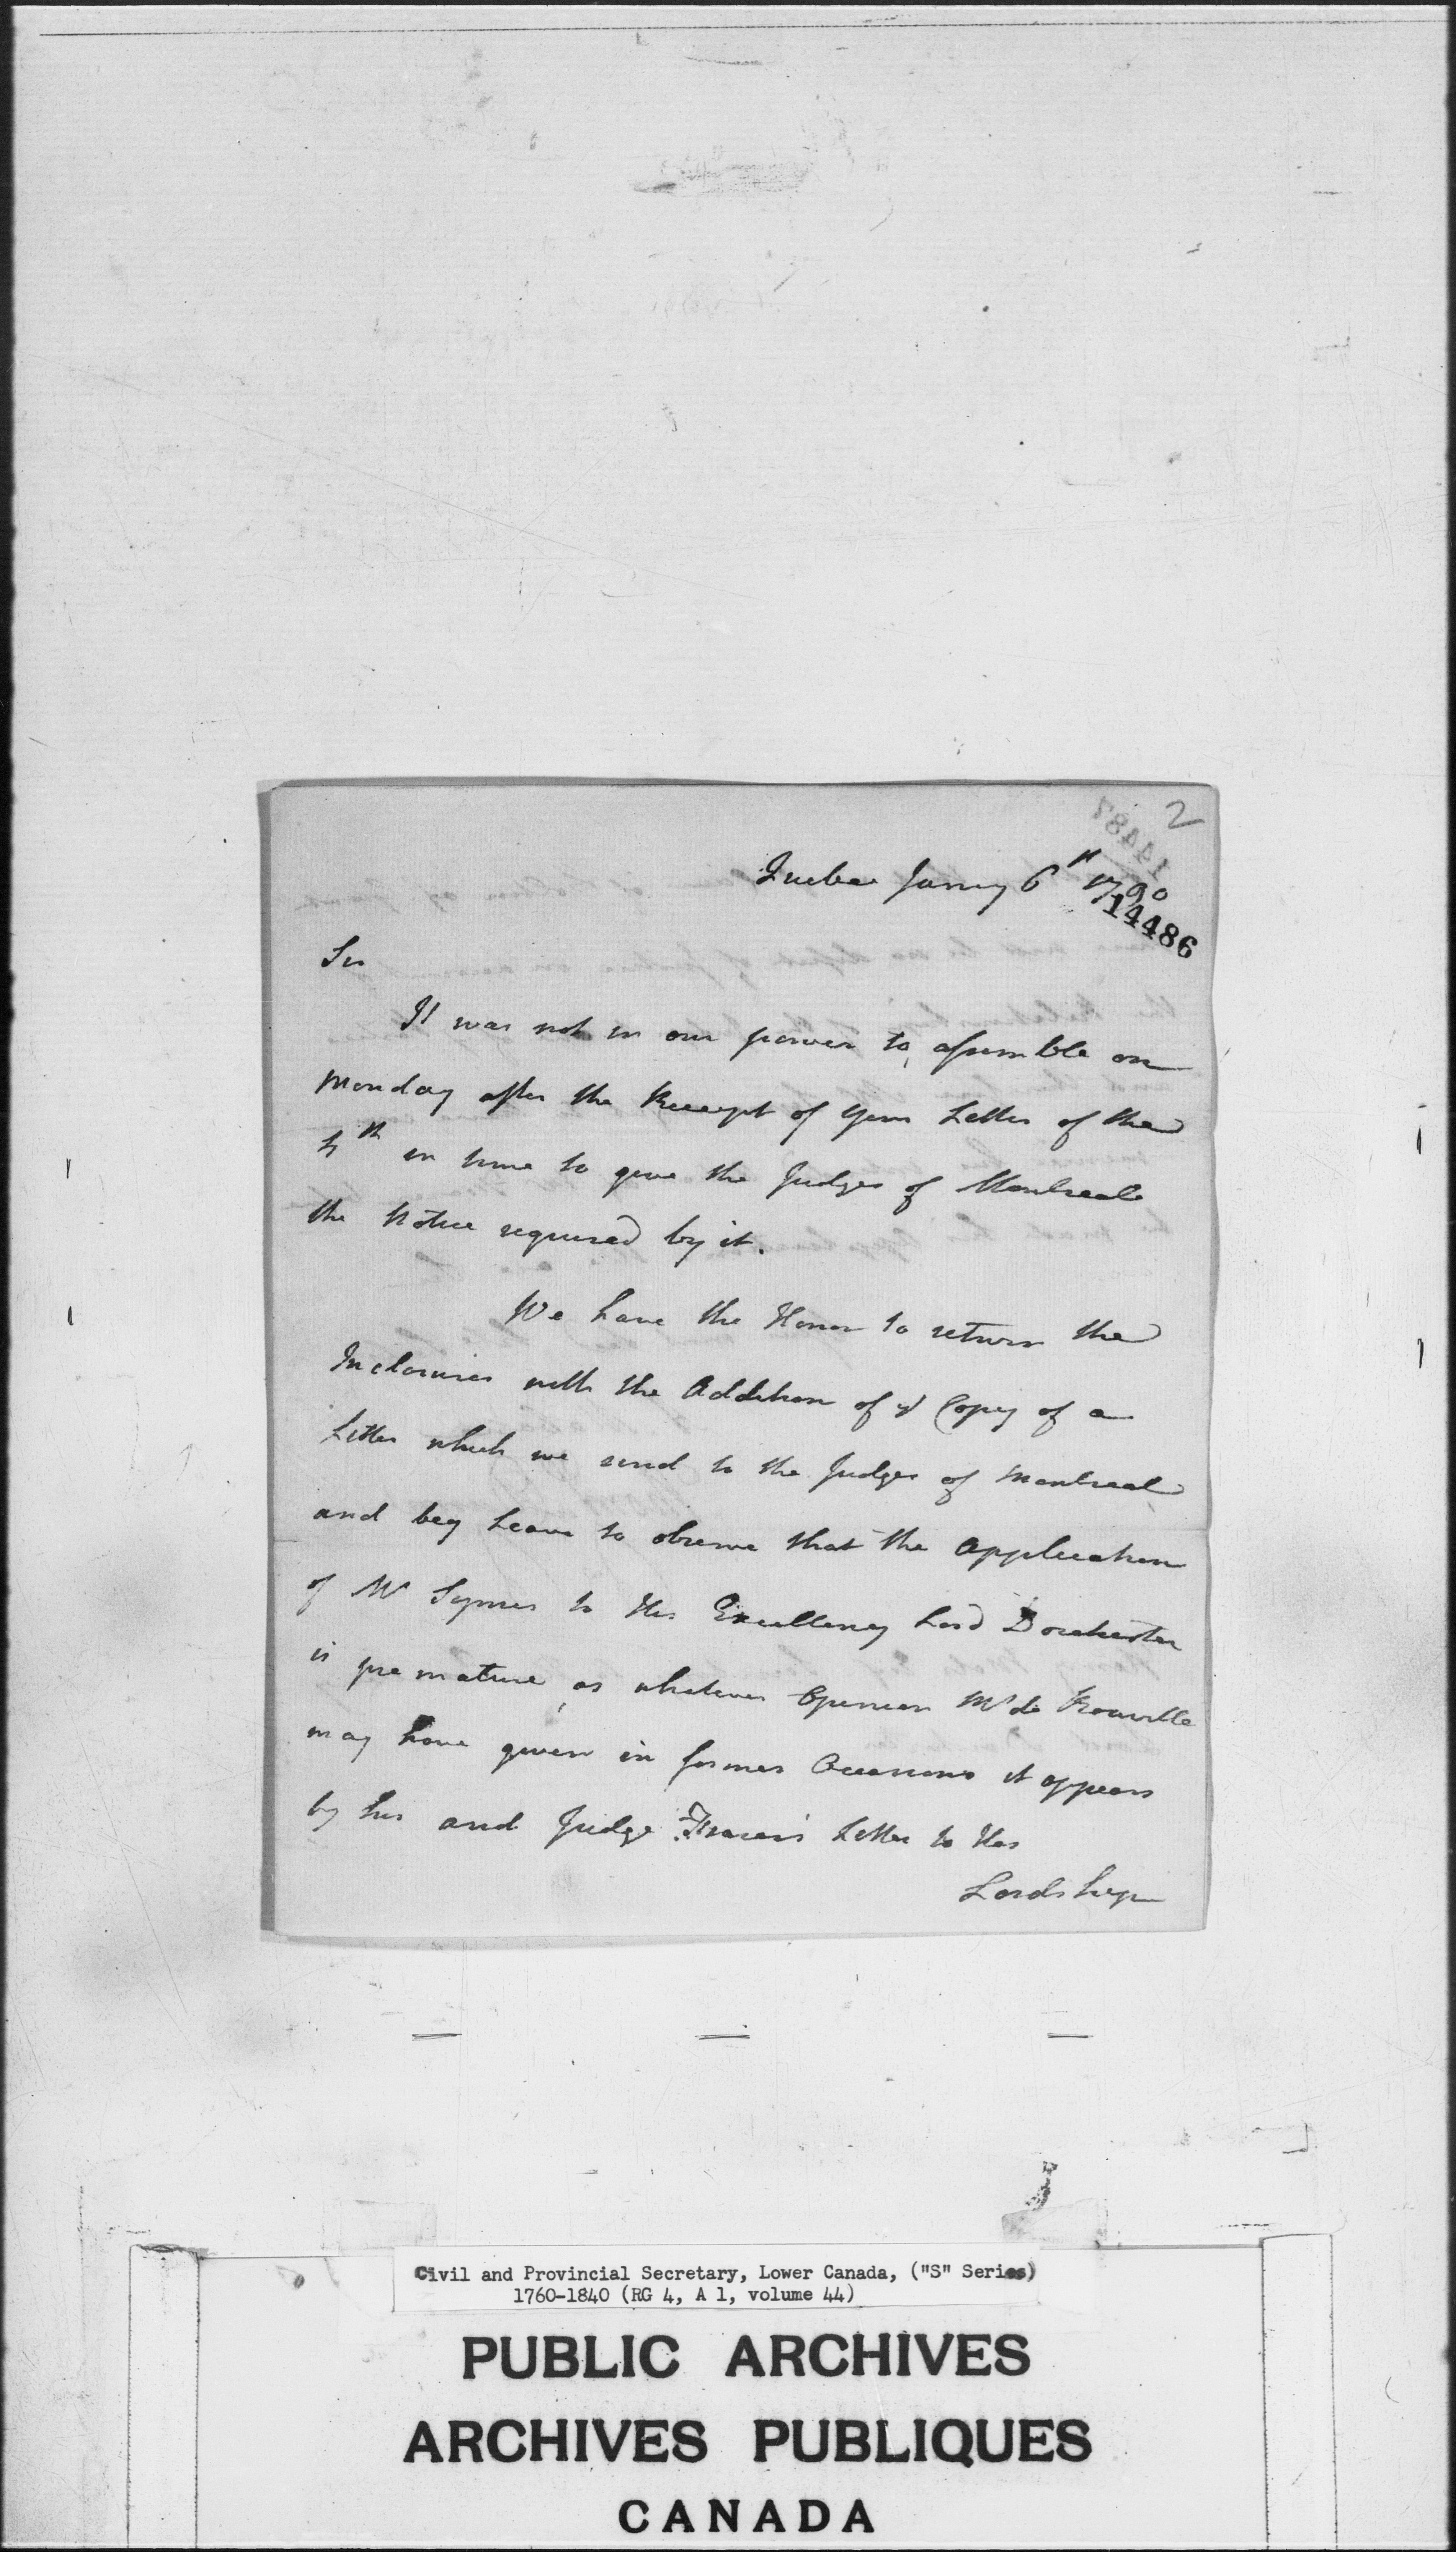 2
Quebec Janry 6th 1790
14486
Sir
It was not in our power to assemble on
Monday after the Receipt of your Letter of the
4th in time to give the Judges of Montreal
the Notice required by it.
We have the Honor to return the
Inclosures with the Addition of Copy of a
Letter which we send to the Judges of Montreal
and beg Leave to observe that the Application
of Mr Symes to His Excellency Lord Dorchester
is premature, as whatever Opinion Mr de Rouville
may have given in former Occasions it appears
by his and Judge Fraser's Letter to His
Lordship
Civil and Provincial Secretary, Lower Canada, ("S" Series)
1760-1840 (RG 4, A 1, volume 44)
PUBLIC ARCHIVES
ARCHIVES PUBLIQUES
CANADA